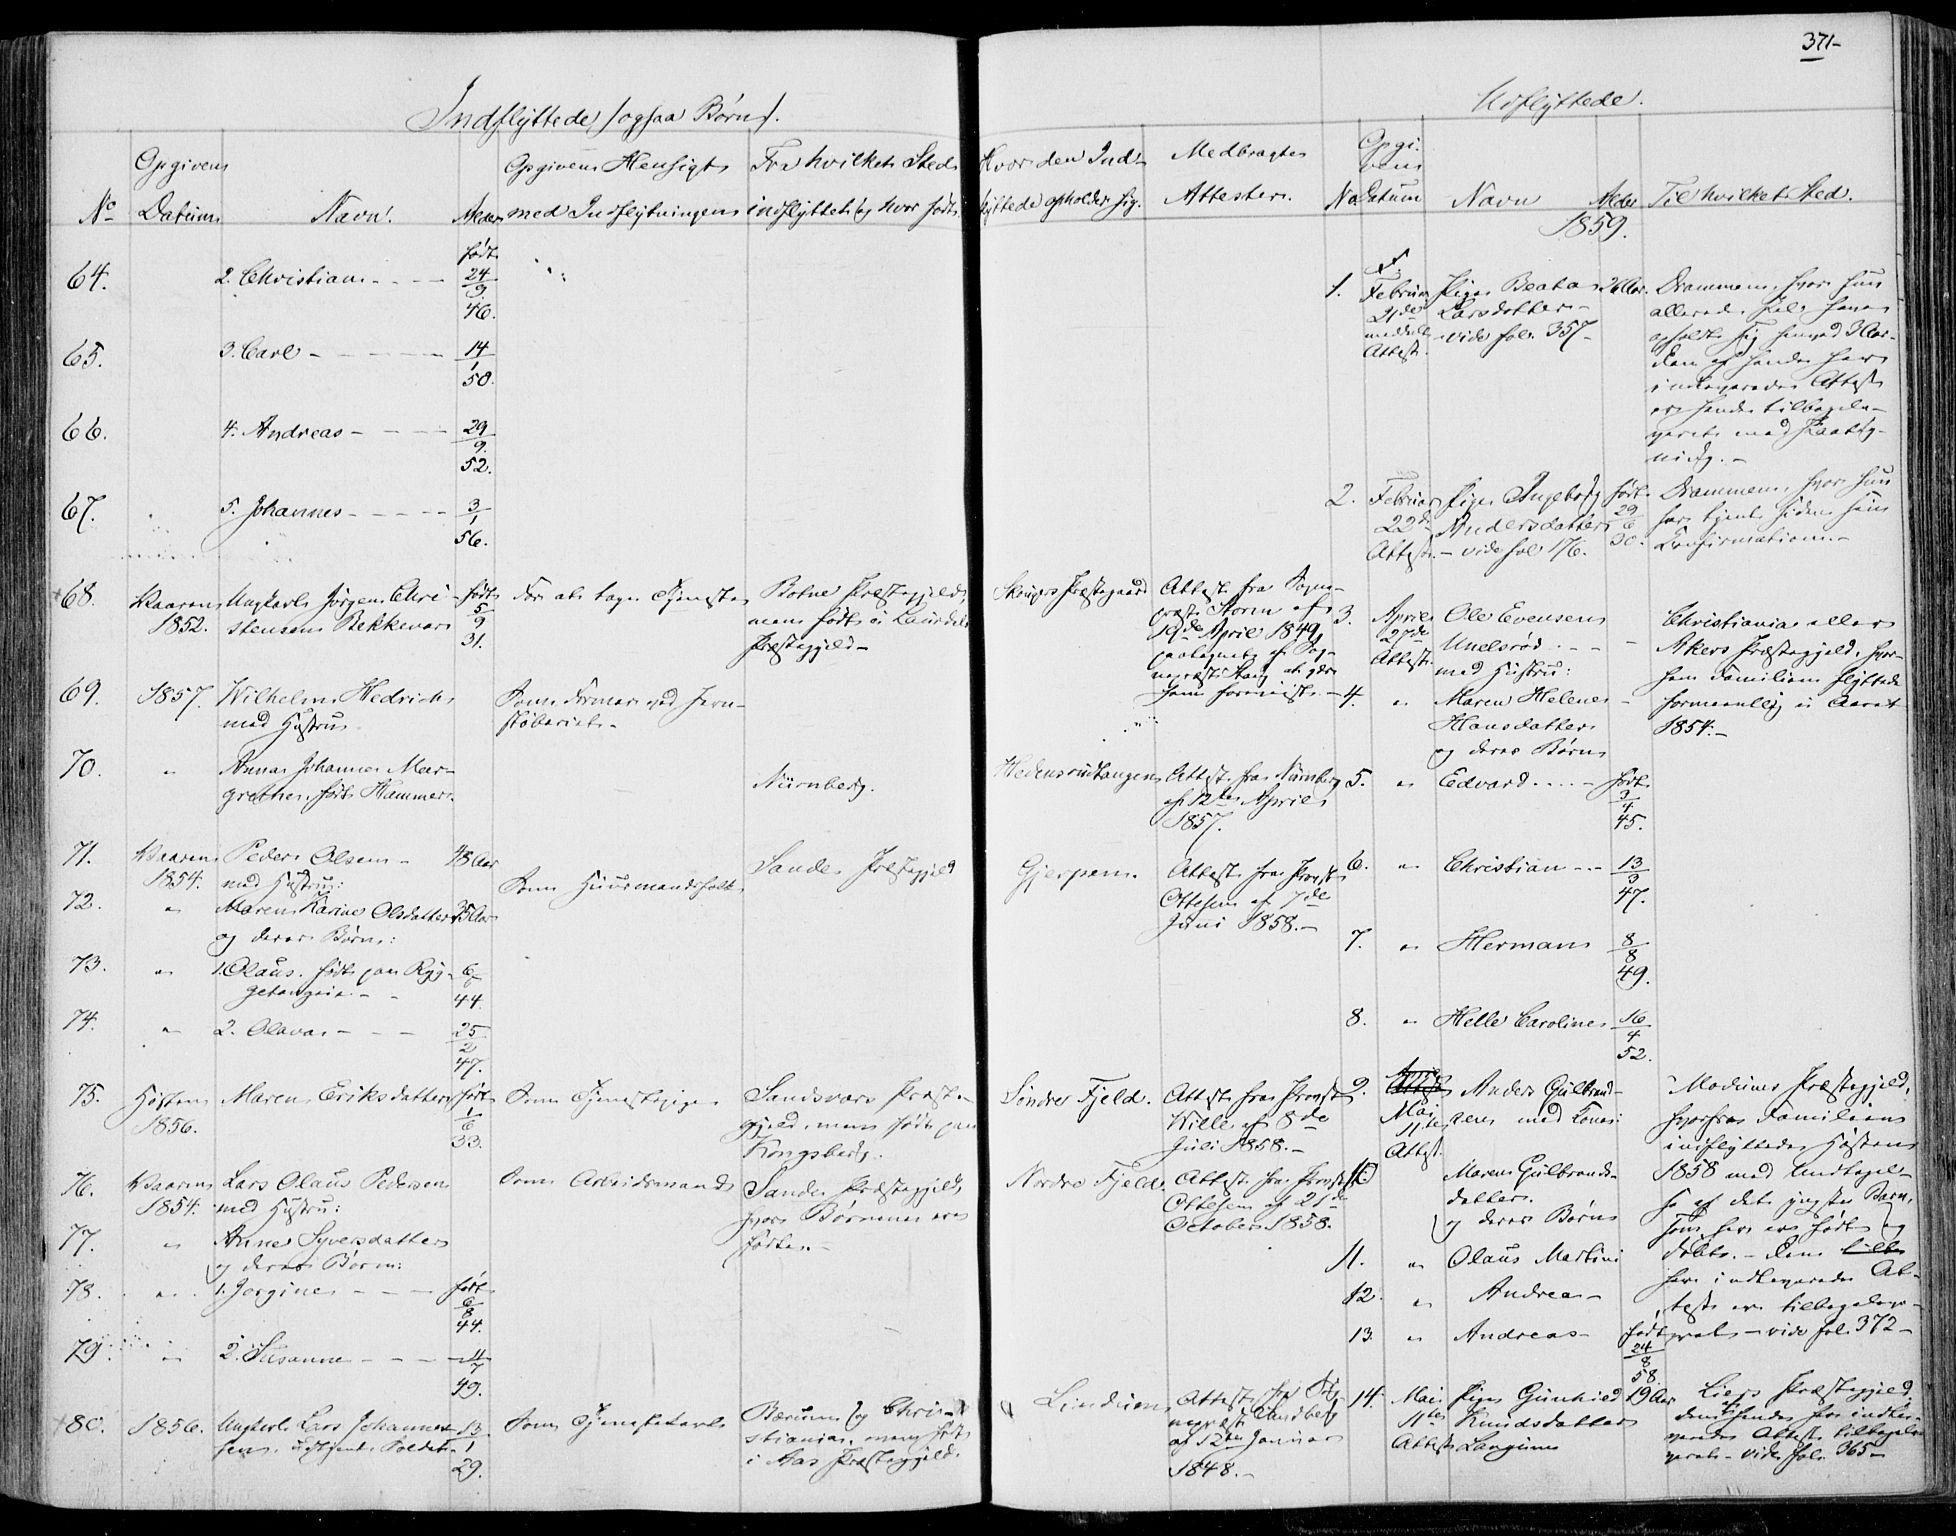 371-
Indflyttede (ogsaa Børn).
Udflyttede.
No
Opgivens Datum
Navn
Alder
Opgivens Hensigt med Indflytningen
Fra hvilket Sted indflyttet og hvor født
Hvor den Indflyttede opholder sig.
Medbragte Attester.
No
Opgivens Datum
Navn
Alder
Til hvilket Sted.
64.
2. Christian
født 24/9 46.
65.
3. Carl
14/1 50.
66.
4. Andreas
29/9 52.
67.
5. Johannes
3/1 56.
68.
Vaaren
1852.
Ungkarl Jørgen Chri-
stensen Bekkevar
født 5/9 31.
For at tage Tjeneste
Botne Præstegjeld,
men født i Laurdal
Præstegjeld
Skoger Præstegaard
Attest fra Sogne-
præst Storm af
19de April 1849,
69.
1857.
Wilhelm Hedrich
med Hustru
Som Former ved Jern-
støberiet
70.
"
Anna Johanne Mar-
grethe, født Hammer.
Nürnberg.
Hedensrudtangen
Attest fra Nürnberg
af 12te April
1857.
71.
Vaaren
1854.
Peder Olsen
med Hustru:
48 Aar
Som Huusmandsfolk
Sande Præstegjeld
Gjerpen.
Attest fra Provst
Ottesen af 7de
Juni 1858.
72.
"
Maren Karine Olsdatter
og deres Børn:
35 Aar
73.
"
1. Olaus, født paa Ryg-
getangen
44.
74.
"
2. Olava
25/2 47.
75.
Høsten
1856.
Maren Eriksdatter
født 1/6 33.
Som Tjenestepige
Sandsvær Præste-
gjeld, men født paa
Kongsberg.
Søndre Fjeld.
Attest fra Provst
Wille af 8de
Juli 1858.
76.
Vaaren
1854.
Lars Olaus Pedersen
med Hustru:
Som Arbeidsmand
Sande Præstegjeld,
hvor Børnene ere
fødte.
Nordre Fjeld
Attest fra Provst
Ottesen af 21de
October 1858.
77.
"
Anne Syversdatter
og deres Børn:
78.
"
1. Jorgine
født 6/8 44.
79.
"
2. Susanne
11/7 49.
80.
1856.
Ungkarl Lars Johannes-
sen, udtjent Soldat
13/1 29.
Som Tjenestekarl
Bærum og Chri-
stiania, men født
i Aas Præstegjeld.
Lindum
Attest fra Sog-
nepræst Sandberg
af 12te Januar
1848.
1859.
1.
Februar
21de
meddelt
Attest.
Pige Beata
Larsdatter
vide fol. 357
26 Aar.
Drammen, hvor hun
allerede skal have
opholdt sig henved 3 Aar.
Den af hende her
indleverede Attest
er hende tilbagele-
veret med Paateg-
ning.
2.
Februar
22de
Attest.
Pige Ingeborg
Andersdatter
vide fol 176.
født 29/6 30.
Drammen, hvor hun
har tjent siden sin
Confirmation.
3.
April
27de
Attest.
Ole Evensen
Unelsrød
med Hustru:
Christiania eller
Akers Præstegjeld, hvor-
hen Familien flyttede
formeentlig i Aaret
1854.
4.
"
Maren Helene
Hansdatter
og deres Børn
5.
"
Edvard
født 3/4 45.
6.
"
Christian
13/3 47.
7.
"
Herman
8/8 49.
8.
"
Helle Caroline
16/4 52.
9.
Mai
11te
Attest.
Anders Gulbrand-
sen med Kone:
Modums Præstegjeld,
hvorfra Familien
indflyttede Høsten
1858 med Undtagel-
se af det yngste Barn,
som her er født og
døbt. - Den
her indleverede At-
test er tilbageleve-
ret - vide fol. 372
10.
Maren Gulbrands-
datter.
og deres Børn
11.
"
Olaus Martin
12.
"
Andrea
13.
"
Andreas
født 24/8 58.
14.
Mai
11te
Attest
Pige Gunhild
Knudsdatter
Langum
19 Aar
Liers Præstegjeld,
den af hende her indle-
verede Attest tilbagele-
veret - vide fol. 365